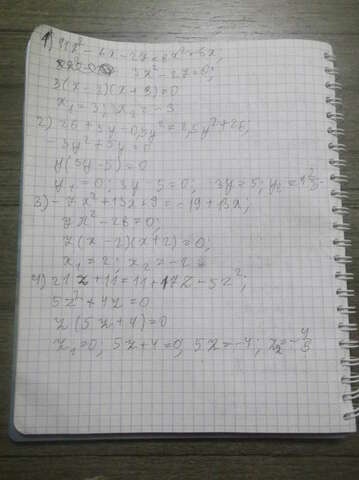 1) 11x² - 6x - 27 = 8x² - 6x;
3x² - 27 = 0;
3(x - 3)(x + 3) = 0
x₁ = 3; x₂ = -3
2) 26 + 5y - 0,5y² = 2,5y² + 26;
- 3y² + 5y = 0
y(3y - 5) = 0
y₁ = 0; 3y - 5 = 0; 3y = 5; y₂ =
3) - 7x² + 13x + 9 = -19 + 13x;
7x² - 28 = 0;
7(x - 2)(x + 2) = 0;
x₁ = 2; x₂ = -2
4) 21z + 11 = 11 + 17z - 5z²;
5z² + 4z = 0
z(5z + 4) = 0
z₁ = 0; 5z + 4 = 0; 5z = -4; z₂ = -4/5